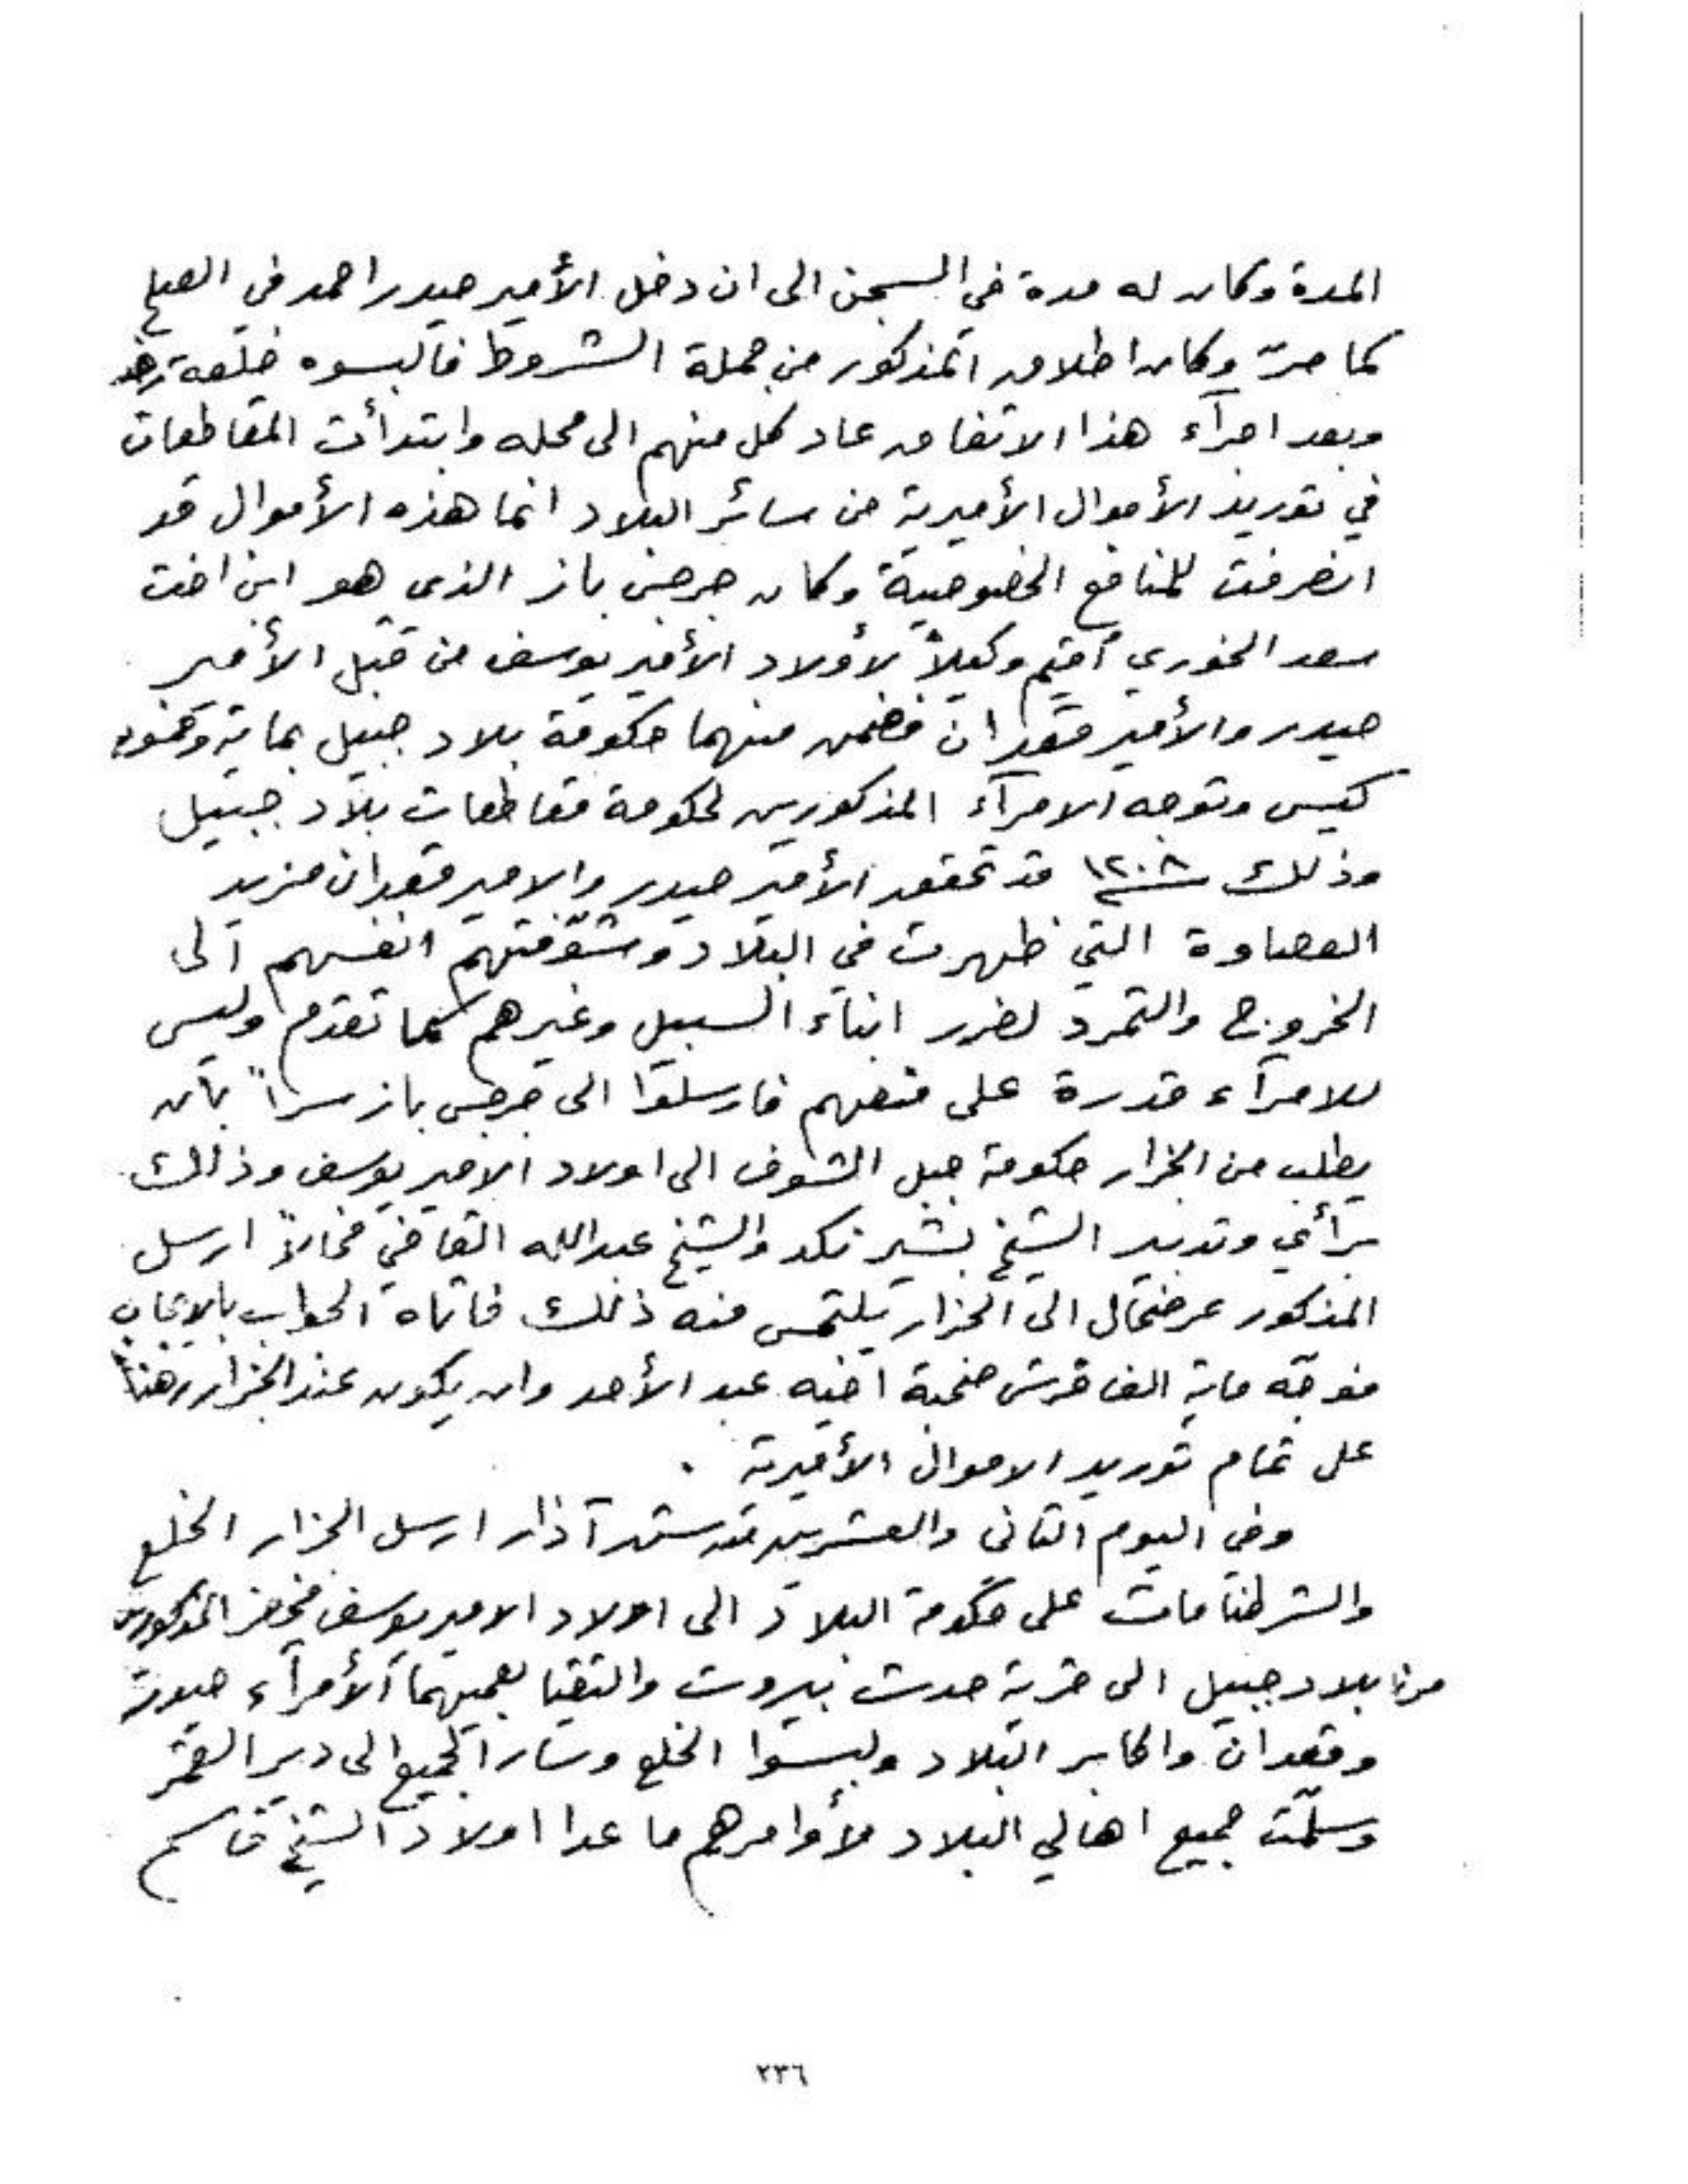 المدة وكان له مدة في السجن الى ان دخل الأمير حيدر احمد في الصلح
كما مرّ وكان اطلاق المذكور من جملة الشروط فالبسوه خلعة
وبعد اجرآء هذا الاتفاق عاد كل منهم الى محله وابتدأت المقاطعات
في توريد الأموال الأميرية من سائر البلاد انما هذه الأموال قد
انصرفت للمنافع الخصوصية وكان جرجس باز الذي هو ابن اخت
سعد الخوري أقيم وكيلاً لأولاد الأمير يوسف من قبل الأمير
حيدر والأمير قعدان فضمن منهما حكومة بلاد جبيل بماية وخمسون
كيس وتوجه الامرآء المذكورين لحكومة مقاطعات بلاد جبيل
وذلك سنة ١٢٠٨ قد تحقق الأمير حيدر والامير قعدان مزيد
العصاوة التي ظهرت في البلاد وشوّقتهم انفسهم الى
الخروج والتمرد لضرر ابناء السبيل وغيرهم كما تقدم وليس
للامرآء قدرة على منعهم فارسلوا الى جرجس باز سراً بأن
يطلب من الجزار حكومة جبل الشوف الى اولاد الامير يوسف وذلك
برأي وتدبير الشيخ بشير نكد والشيخ عبدالله القاضي فحالاً ارسل
المذكور عرضحال الى الجزار يلتمس منه ذلك فاتاه الجواب بالايجاب
فوجّه ماية الف قرش صحبة اخيه عبد الأحد وان يكون عند الجزار رهناً
على تمام توريد الاموال الأميرية .
وفي اليوم الثاني والعشرين من شهر آذار ارسل الجزار الخلع
والشرطنامات على حكومة البلاد الى اولاد الامير يوسف فحضر المذكورين
من بلاد جبيل الى قرية حدث بيروت والتقيا بعميهما الأمرآء حيدر
وقعدان واكابر البلاد ولبسوا الخلع وسار الجميع الى دير القمر
وسلّمت جميع اهالي البلاد لأوامرهم ما عدا اولاد الشيخ قاسم
٢٣٦